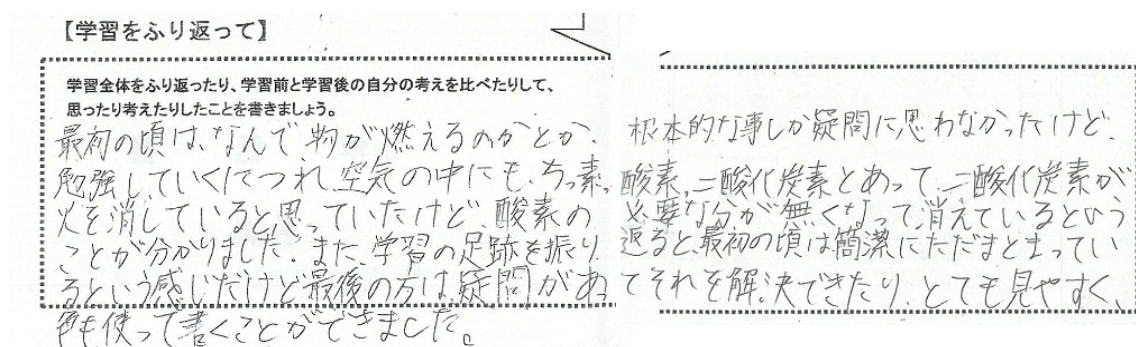 【学習をふり返って】
学習全体をふり返ったり、学習前と学習後の自分の考えを比べたりして、
思ったり考えたりしたことを書きましょう。
最初の頃は、なんで物が燃えるのかとか、根本的な事しか疑問に思わなかったけど、
勉強していくにつれ、空気の中にも、ちっ素、酸素、二酸化炭素とあって、二酸化炭素が
火を消していると思っていたけど、酸素の必要な分が無くなって、消えているという
ことが分かりました。また、学習の足跡を振り返ると、最初の頃は簡潔にただまとまってい
るという感じだけど最後の方は、疑問があってそれを解決できたり、とても見やすく、
色も使って書くことができました。